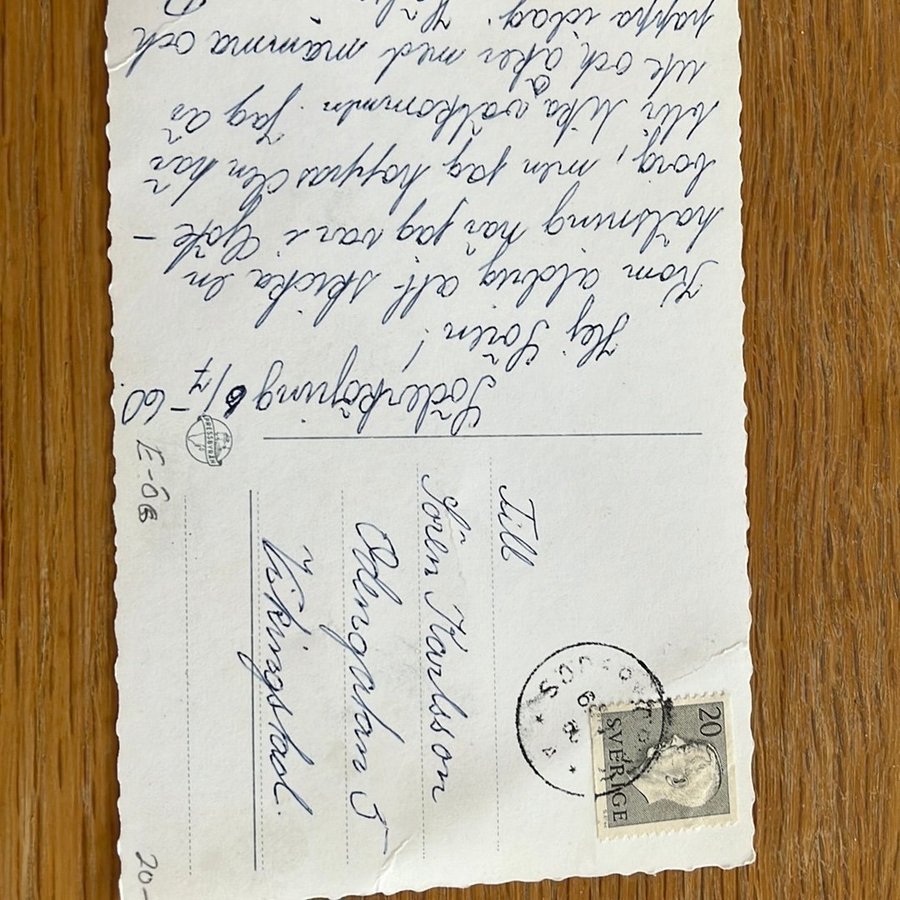 Söderköping 6/7 -60.
Hej Sören!
Kom aldrig att skicka en
hälsning när jag var i Göte-
borg, men jag hoppas den här
blir lika välkommen. Jag är
ute och åker med mamma och
pappa idag.
PRESSBYRÅN
E-ÖG
Till
Sören Karlsson
Odengatan 5
Vikingstad.
20
SVERIGE
20-